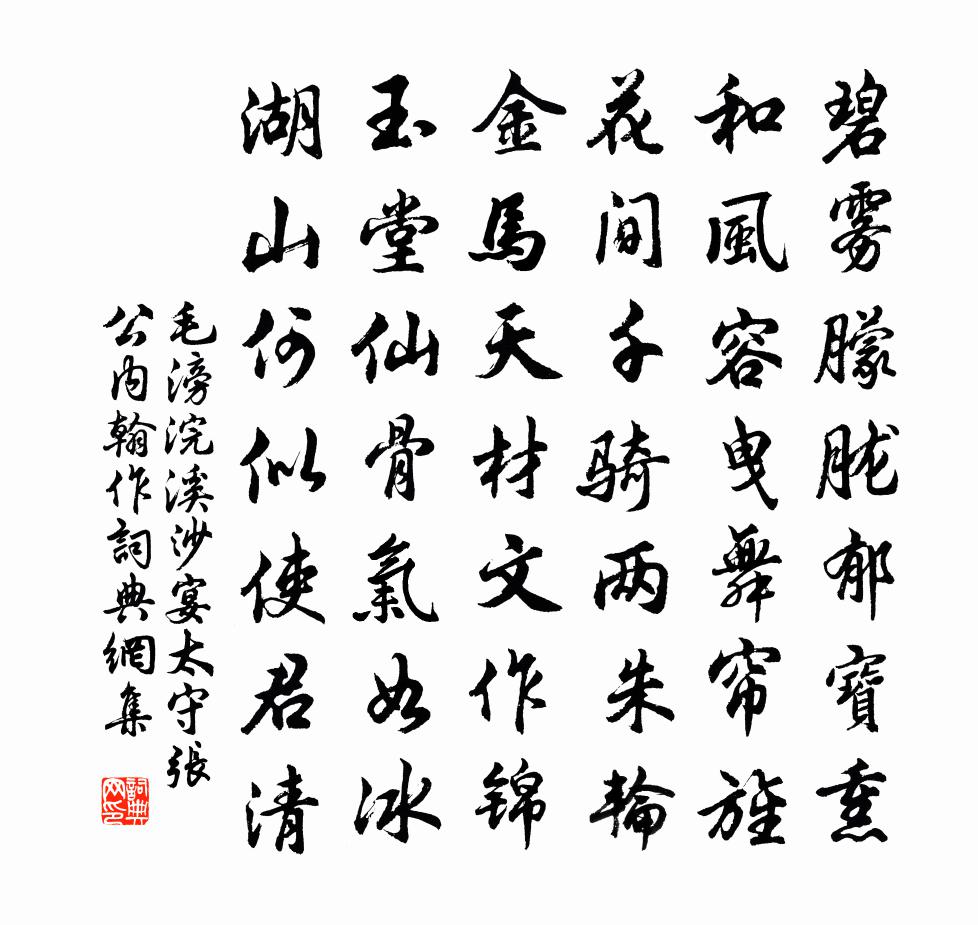 碧雾朦胧郁寶熏
和風容曳舞帘旌
花间千骑两朱輪
金馬天材文作锦
玉堂仙骨氣如冰
湖山何似使君清
毛滂浣溪沙宴太守張
公内翰作詞典網集
詞典网印